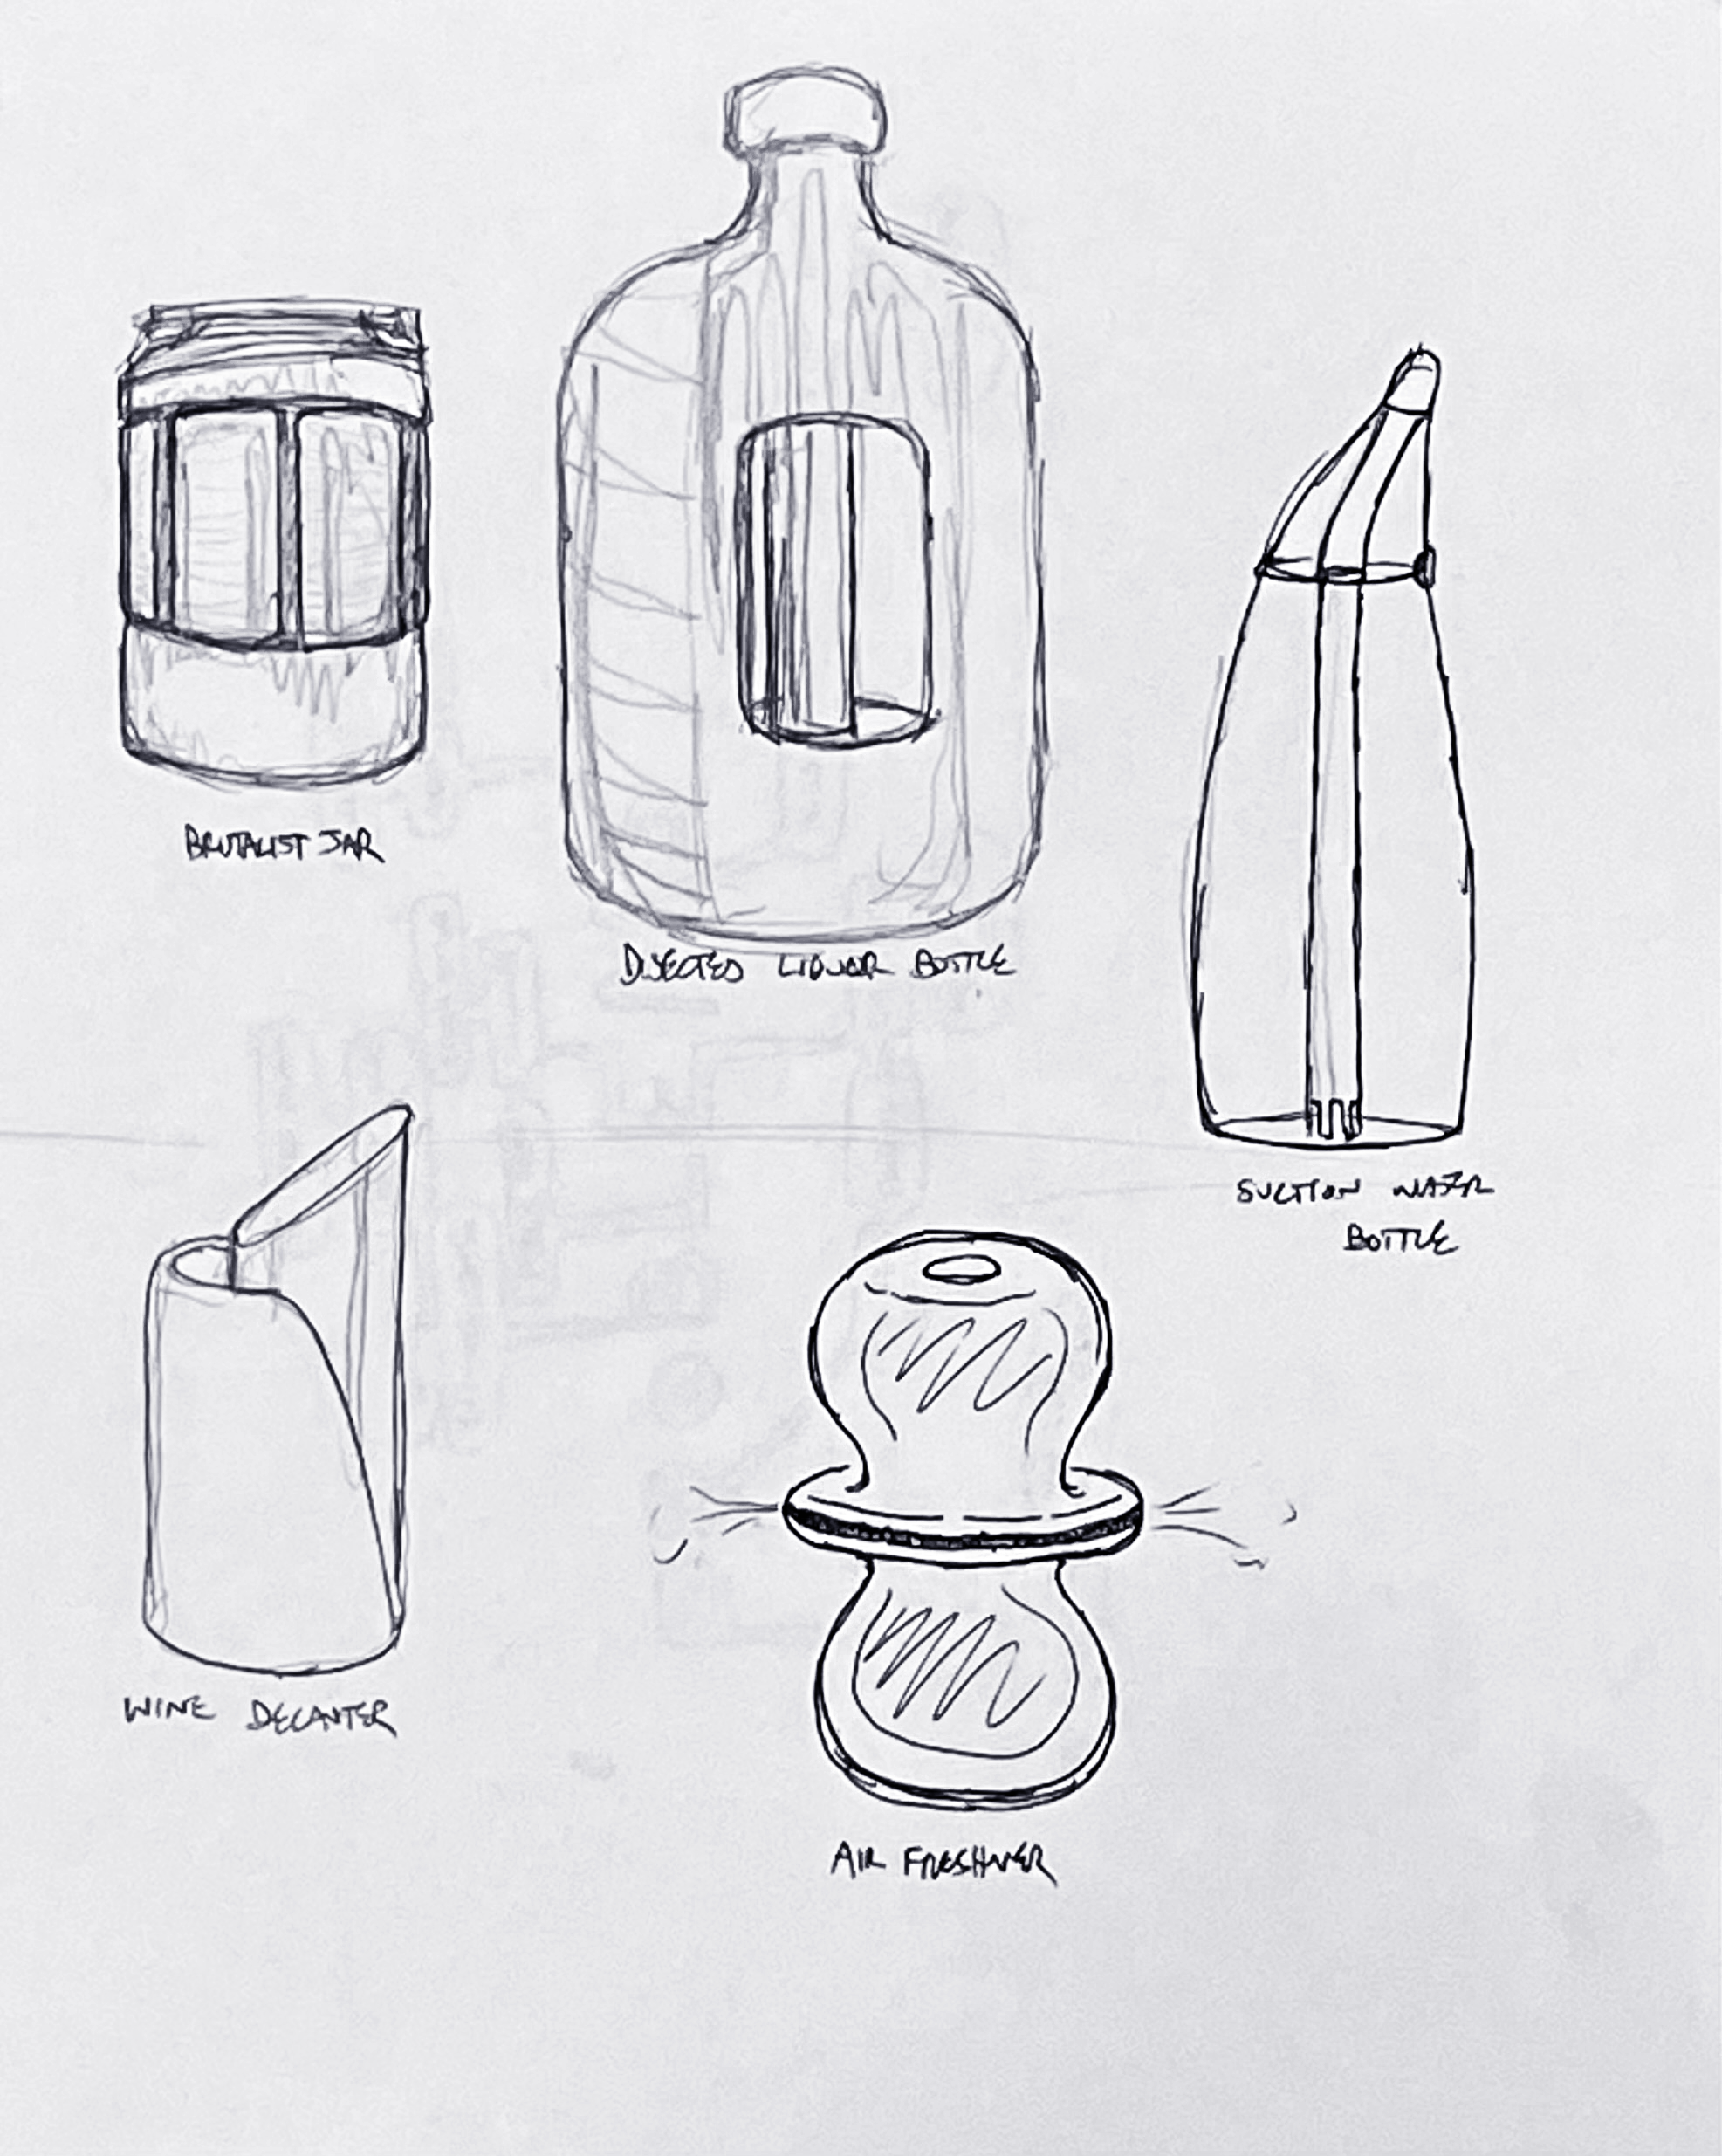 BRUTALIST JAR
LIQUOR BOTTLE
SUCTION WATER
BOTTLE
WINE DECANTER
AIR FRESHNER